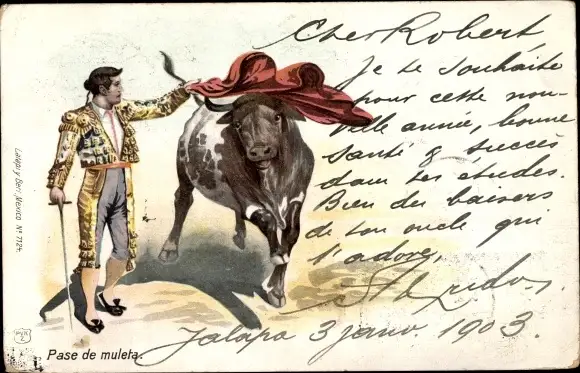 Cher Robert,
Je te souhaite
pour cette nou-
velle année, bonne
santé & succès
dans tes études.
Bien des baisers
de ton oncle qui
t'adore,
Jalapa 3 janv. 1903.
Pase de muleta.
Latapi y Bert, Mexico Nº 7124.